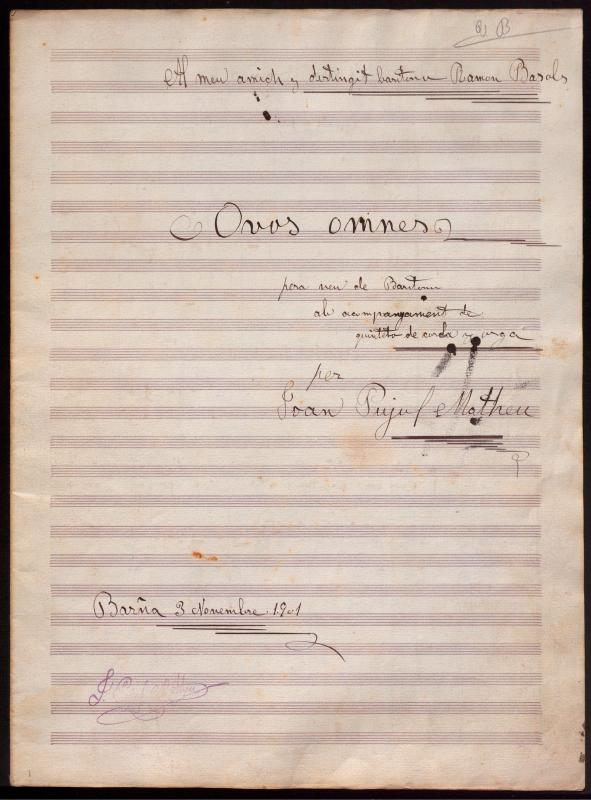 B
Al meu amich y distingit baritono Ramon Basols
O vos omnes
pera veu de Baritono
ab acompanyament de
quinteto de corda y orga
per
Joan Pujol Matheu
Barña 3 Novembre 1901